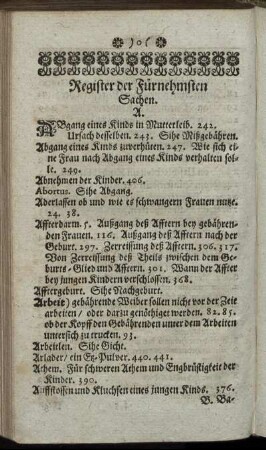 ❧ ) o ( ☙
Register der Fürnehmsten
Sachen.
A.
ABgang eines Kinds in Mutterleib. 242.
Ursach desselben. 243. Sihe Mißgebähren.
Abgang eines Kinds zuverhüten. 247. Wie sich ei-
ne Frau nach Abgang eines Kinds verhalten sol-
le. 249.
Abnehmen der Kinder. 406.
Abortus. Sihe Abgang.
Aderlassen ob und wie es schwangern Frauen nutze.
24. 38.
Affterdarm. 5. Außgang deß Afftern bey gebähren-
den Frauen. 116. Außgang deß Afftern nach der
Geburt. 297. Zerreissung deß Afftern. 306. 317.
Von Zerreissung deß Theils zwischen dem Ge-
burts-Glied und Afftern. 301. Wann der Affter
bey jungen Kindern verschlossen. 368.
Afftergeburt. Sihe Nachgeburt.
Arbeit) gebährende Weiber sollen nicht vor der Zeit
arbeiten/ oder darzu genöthiget werden. 82. 85.
ob der Kopff den Gebährenden unter dem Arbeiten
untersich zu trucken. 93.
Arbeitlen. Sihe Gicht.
Arlader/ ein Etz-Pulver. 440. 441.
Athem. Für schweren Athem und Engbrüstigkeit der
Kinder. 390.
Auffstossen und Kluchsen eines jungen Kinds. 376.
B. Ba-